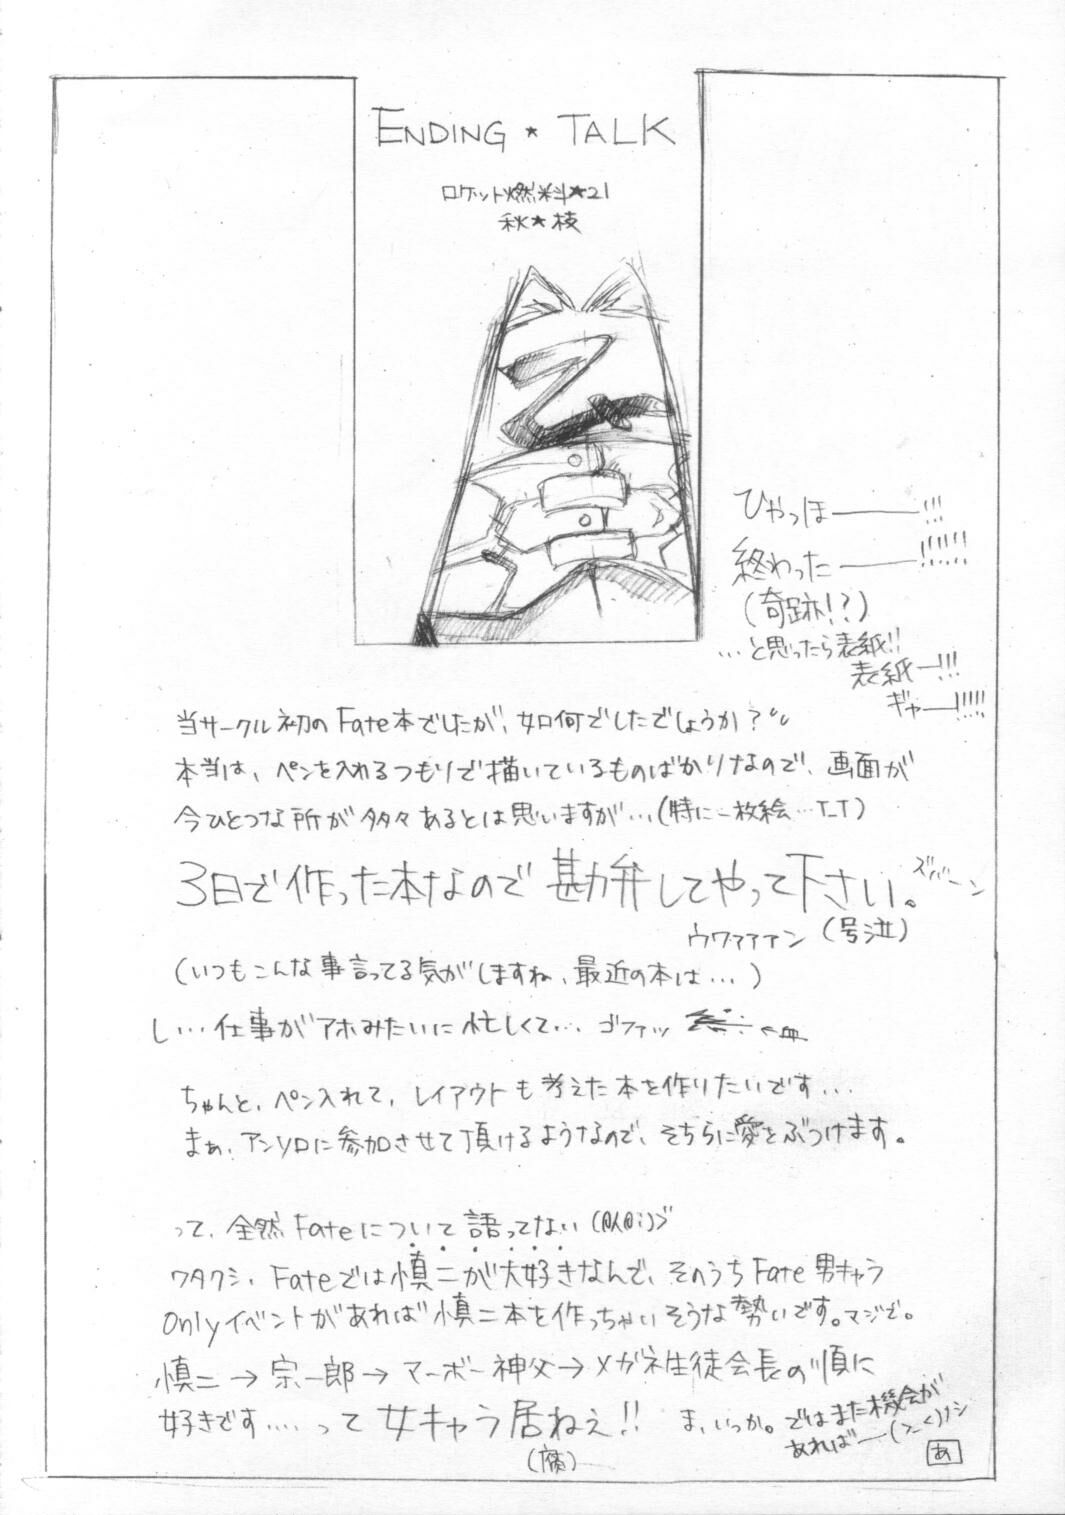 ENDING ★ TALK
ロケット燃料★21
秋★枝
ひやっほ———!!!
終わった———!!!!!!
(奇跡!?)
…と思ったら表紙!!
表紙—!!!
ギャ—!!!!!
当サークル初のFate本でしたが、如何でしたでしょうか?
本当は、ペンを入れるつもりで描いているものばかりなので、画面が
今ひとつな所が多々あるとは思いますが…(特に一枚絵…T_T)
3日で作った本なので勘弁してやって下さい。
ズバーン
ウワァァァン (号泣)
(いつもこんな事言ってる気がしますね、最近の本は…)
し…仕事がアホみたいに忙しくて… ゴファッ ←血
ちゃんと、ペン入れて、レイアウトも考えた本を作りたいです…
まぁ、アンソロに参加させて頂けるようなので、そちらに愛をぶつけます。
って、全然Fateについて語ってない
ワタクシ、Fateでは慎二が大好きなんで、そのうちFate男キャラ
Onlyイベントがあれば慎二本を作っちゃいそうな勢いです。マジで。
慎二→宗一郎→マーボー神父→メガネ生徒会長の順に
好きです…. って女キャラ居ねぇ!!
(腐)
ま、いっか。ではまた機会が
あれば—(>_<)ノシ
あ